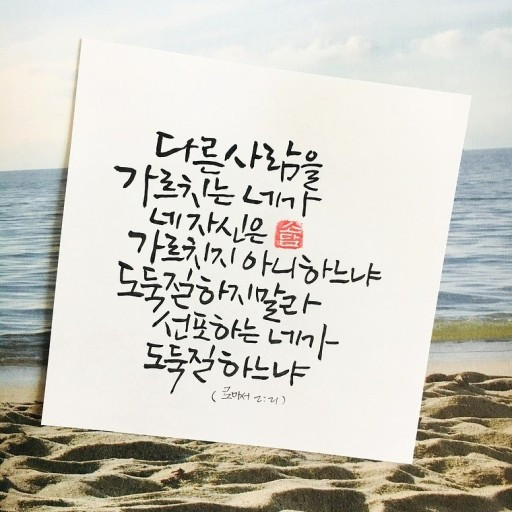 다른 사람을
가르치는 네가
네 자신은
소담
가르치지 아니하느냐
도둑질하지말라
선포하는 네가
도둑질하느냐
(로마서 2:21)